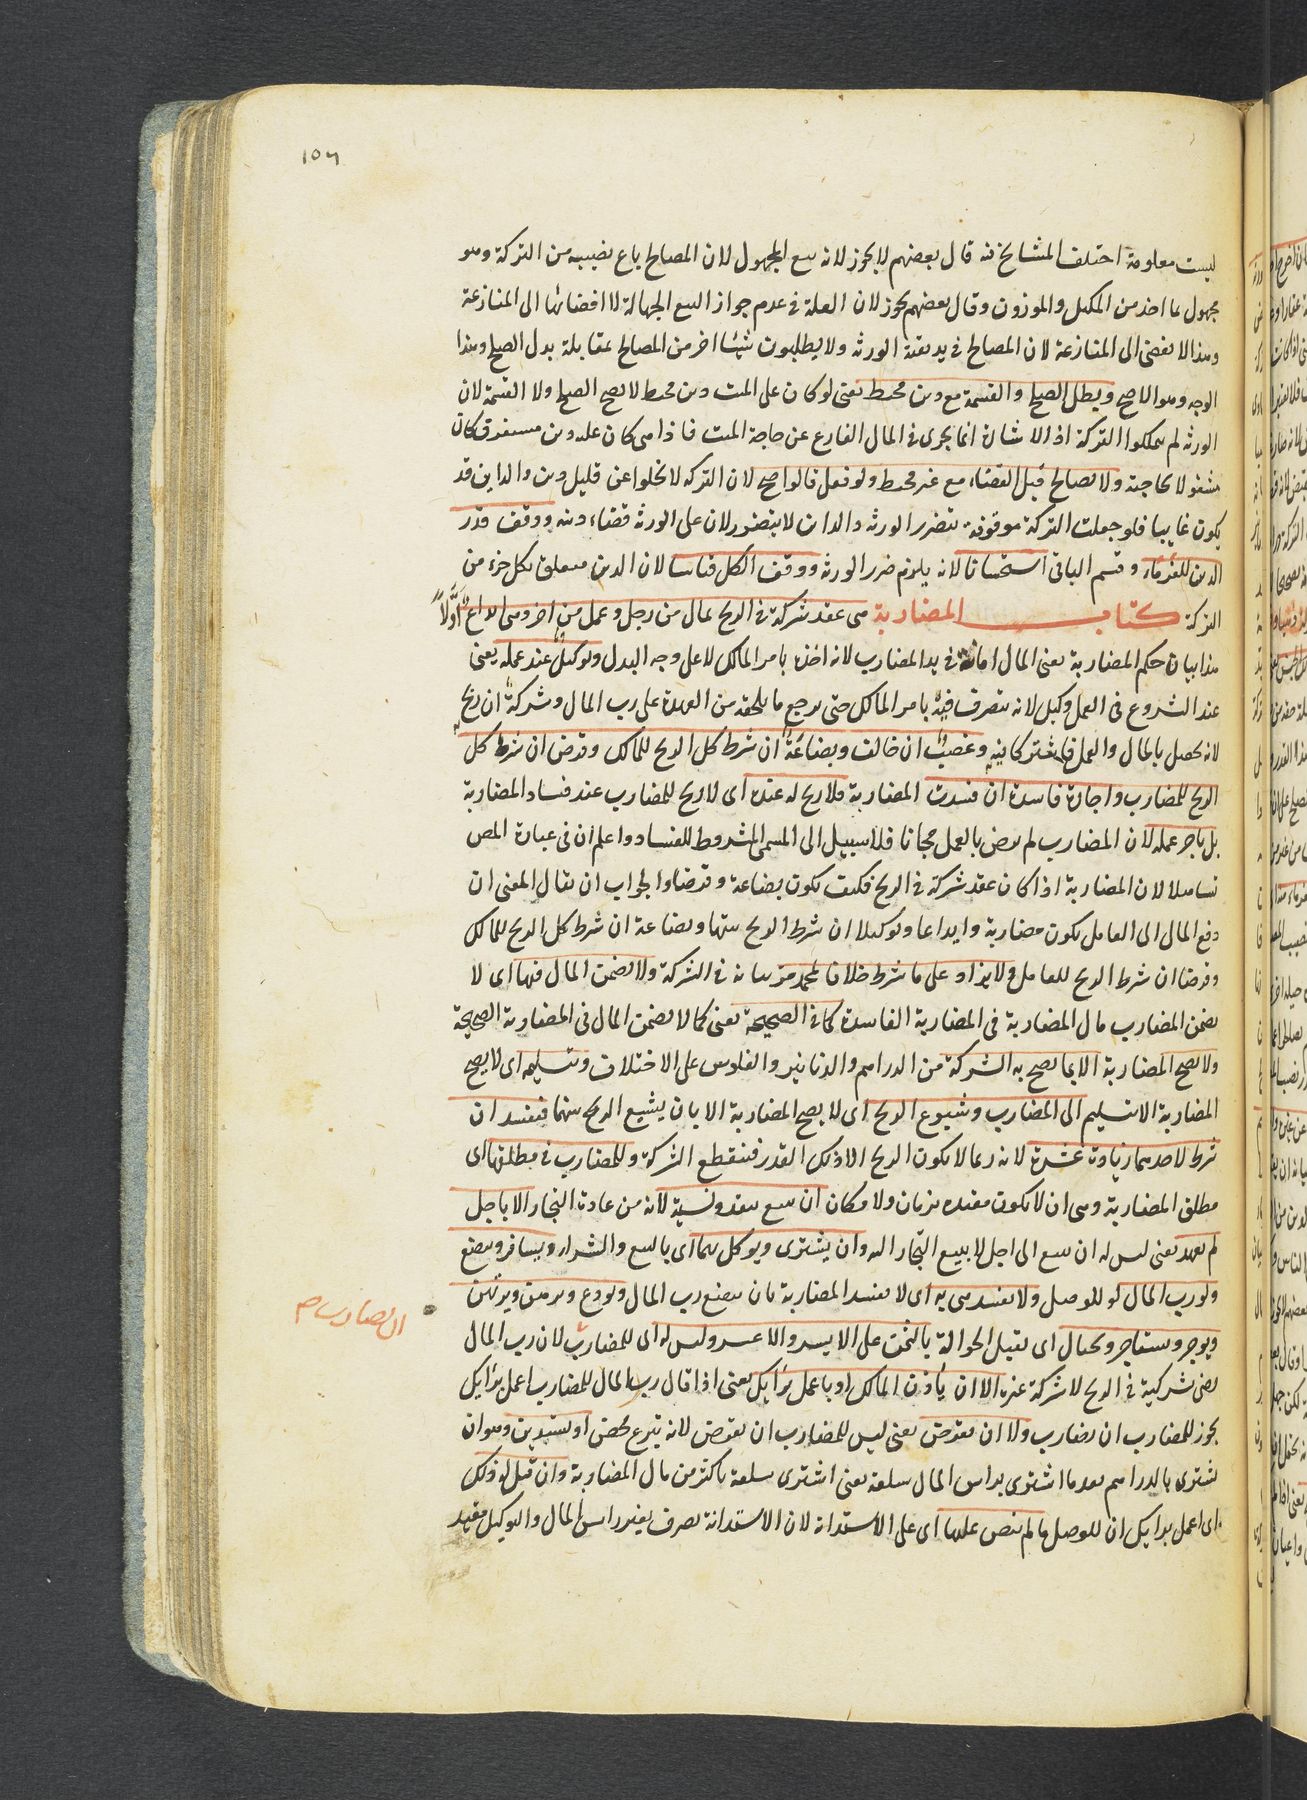 ١٥٦
ليست معلومة اختلف المشايخ فيه قال بعضهم لا يجوز لانه بيع المجهول لان المصالح باع نصيبه من التركة وهو
مجهول بما اخذ من المكيل والموزون وقال بعضهم يجوز لان العلة فى عدم جواز البيع الجهالة لا افضائها الى المنازعة
وهذا لا يفضى الى المنازعة لان المصالح فى يد بقية الورثه ولا يطلبون شيئا اخر من المصالح بمقابلة بدل الصلح وهذا
الوجه وهو الاصح وبطل الصلح والقسمة مع دين محيط يعنى لو كان على الميت دين محيط لا يصح الصلح ولا القسمة لان
الورثه لم يتملكوا التركة اذ الارث انما يجرى فى المال الفارغ عن حاجة الميت فاذا متى كان عليه دين مستغرق كان
مشغولا بحاجته ولا يصالح قبل القضاء مع غير محيط ولو فعل قالوا صح لان التركه لا يخلوا عن قليل دين والداين قد
يكون غايبا فلو جعلت التركة موقوفة يتضرر الورثه والداين لا يتضرر لان على الورثه قضاء دينه ووقف قدر
الدين للغرماء وقسم الباقى استحسانا لانه يلزم ضرر الورثه ووقف الكل قياسا لان الدين متعلق بكل جزء من
التركة كتاب المضاربة هى عقد شركة فى الربح بمال من رجل وعمل من اخر وهى ايداع اولًا
هذا بيان حكم المضاربة يعنى المال امانة فى يد المضارب لانه اخذه بامر المالك لا على وجه البدل وتوكيل عند عمله يعنى
عند الشروع فى العمل وكيل لانه يتصرف فيه بامر المالك حتى يرجع ما يلحقه من العهدة على رب المال وشركة ان ربح
لانه يحصل بالمال والعمل فيشتركا فيه وغصب ان خالف وبضاعة ان شرط كل الربح للمالك وقرض ان شرط كل
الربح للمضارب واجارة فاسدة ان فسدت المضاربة فلا ربح له عنده اى لا ربح للمضارب عند فساد المضاربة
بل باجر عمله لان المضارب لم يرض بالعمل مجانا فلا سبيل الى المسمى المشروط للفساد واعلم ان فى عبارة المص
تساهلا لان المضاربة اذا كان عقد شركة فى الربح فكيف يكون بضاعة وقرضا والجواب ان يقال المعنى ان
دفع المال الى العامل يكون مضاربة وايداعا وتوكيلا ان شرط الربح بينهما وبضاعة ان شرط كل الربح للمالك
وقرضا ان شرط الربح للعامل ولا يزاد على ما شرط خلافا لمحمد مر بيانه فى الشركة ولا يضمن المال فيها اى لا
يضمن المضارب مال المضاربة فى المضاربة الفاسدة كما فى الصحيحة يعنى كما لا يضمن المال فى المضاربة الصحيحة
ولا يصح المضاربة الا بما يصح به الشركة من الدراهم والدنانير والفلوس على الاختلاف وتسليمه اى لا يصح
المضاربة الا بتسليم الى المضارب وشيوع الربح اى لا يصح المضاربة الا بان يشيع الربح بينهما فتفسد ان
شرط لاحدهما زيادة عشرة لانه ربما لا يكون الربح الا ذلك القدر فينقطع الشركة وللمضارب فى مطلقها اى
مطلق المضاربة وهى ان لا يكون مقيده بزمان ولا مكان ان يبيع بنقد ونسية لانه من عادة التجار الا باجل
لم يعهد يعنى ليس له ان يبيع الى اجل لا يبيع التجار اليه وان يشترى ويوكل بهما اى بالبيع والشراء ويسافر ويبضع
ولو رب المال لو للوصل ولا يفسد هى به اى لا يفسد المضاربة بان يبضع رب المال ويودع ويرهن ويرتهن
ويوجر ويستاجر ويحتال اى يقبل الحوالة بالثمن على الايسر والاعسر وليس له اى للمضارب لان رب المال
رضى بشركته فى الربح لا شركة غيره الا ان يأذن المالك او باعمل برأيك يعنى اذا قال رب المال للمضارب اعمل برأيك
يجوز للمضارب ان يضارب ولا ان يقرض يعنى ليس للمضارب ان يقرض لانه تبرع محض او يستدين وهو ان
يشترى بالدراهم بعد ما اشترى براس المال سلعة يعنى اشترى سلعة باكثر من مال المضاربة وان قيل له ذلك
اى اعمل برايك ان للوصل ما لم ينص عليها اى على الاستدانة لان الاستدانة تصرف بغير راس المال والتوكيل مقيد
ان يضارب صح